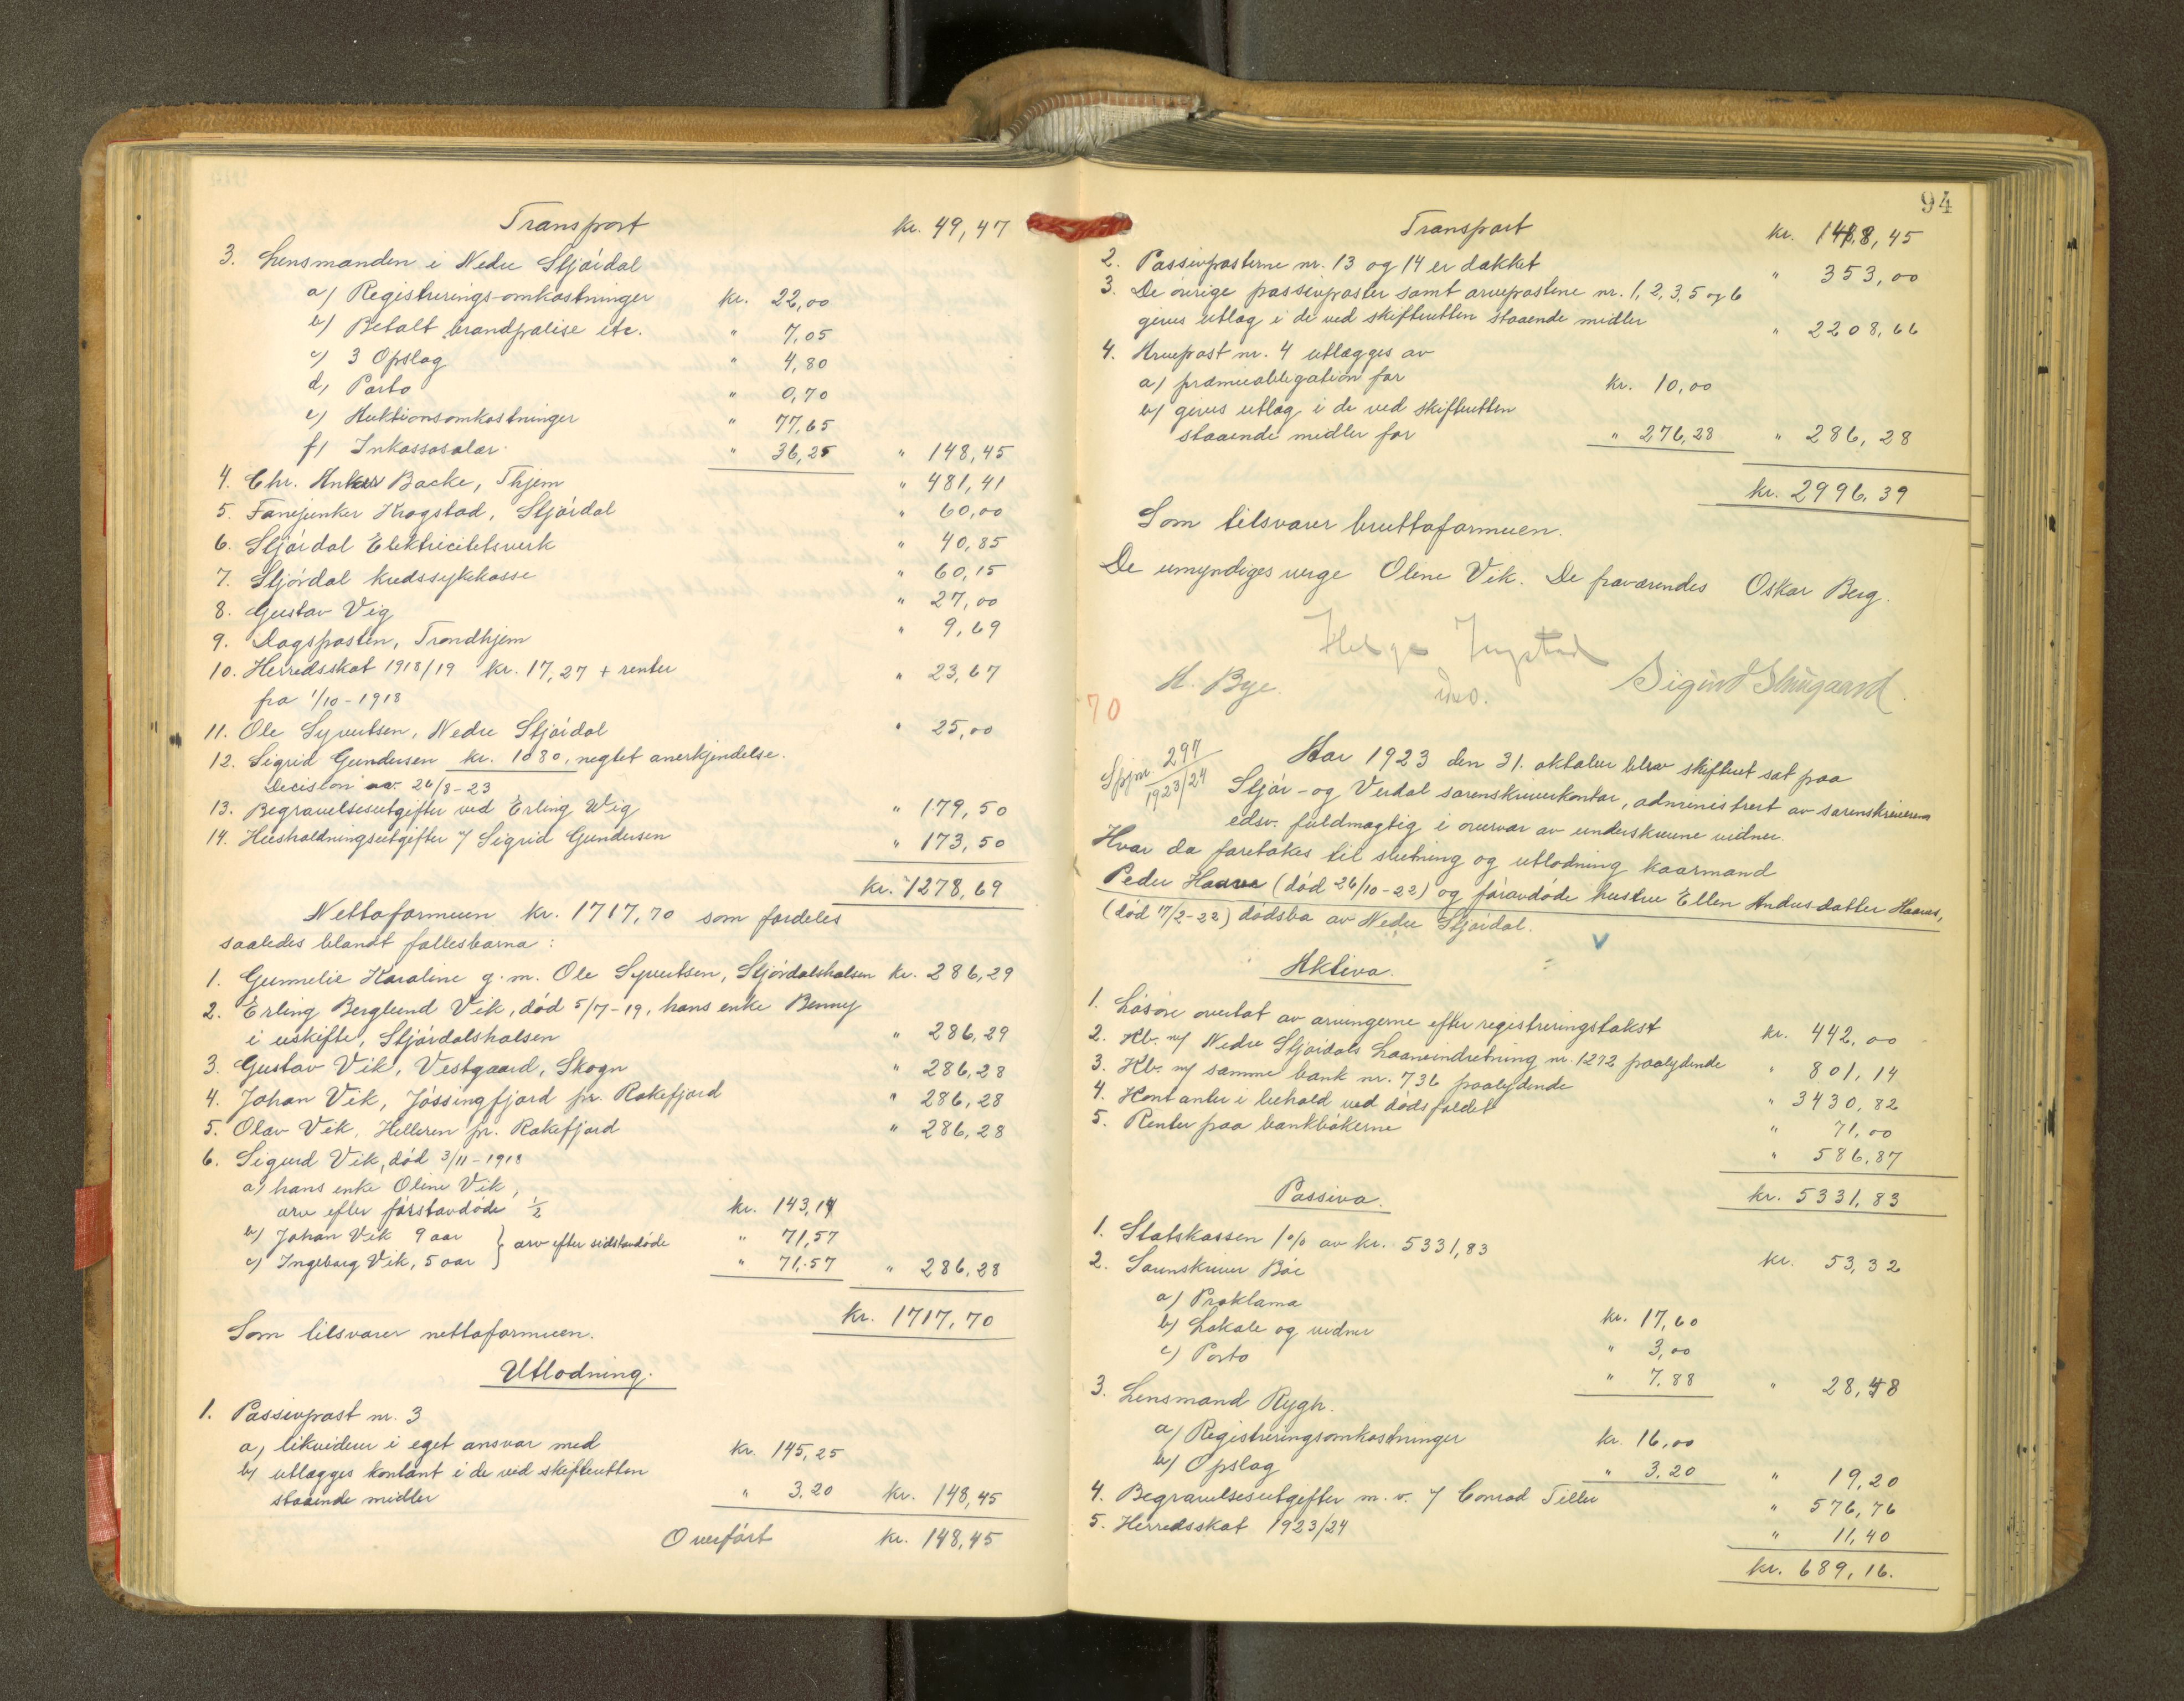 Transport kr. 49,47
3. Lensmanden i Nedre Stjørdal
a) Registrerings-omkostninger kr. 22,00
b) Betalt brandpolise etc. " 7,05
c) 3 Opslag " 4,80
d) Porto " 0,70
e) Auktionsomkostninger " 77,65
f) Inkassosalær " 36,25 " 148,45
4. Chr. Anker Backe, Thjem " 481,41
5. Fanejunker Krogstad, Stjørdal " 60,00
6. Stjørdal Elektricitetsverk " 40,85
7. Stjørdal kredssykekasse " 60,15
8. Gustav Vig " 27,00
9. Dagsposten, Trondhjem " 9,69
10. Herredsskat 1918/19 kr. 17,27 + renter " 23,67
fra 1/10-1918
11. Ole Syvertsen, Nedre Stjørdal " 25,00
12. Sigrid Gundersen kr. 1080, negtet anerkjendelse.
Decision av 26/8-23
13. Begravelsesutgifter ved Erling Wig " 179,50
14. Husholdningsutgifter v/ Sigrid Gundersen " 173,50
kr. 1278,69
Nettoformuen kr. 1717,70 som fordeles
saaledes blandt fællesbarna:
1. Gunnelie Karoline g.m. Ole Syvertsen, Stjørdalshalsen kr. 286,29
2. Erling Berglund Vik, død 5/7-19, hans enke Benny
i uskifte, Stjørdalshalsen " 286,29
3. Gustav Vik, Vestgaard, Skogn " 286,28
4. Johan Vik, Jøssingfjord pr. Rekefjord " 286,28
5. Olav Vik, Helleren pr. Rekefjord " 286,28
6. Sigurd Vik, død 3/11-1918
a) hans enke Oline Vik,
arv efter førstavdøde 1/2 kr. 143,14
b) Johan Vik 9 aar } arv efter sidstavdøde " 71,57
c) Ingeborg Vik, 5 aar " 71,57 " 286,28
kr. 1717,70
Som tilsvarer nettoformuen.
Utlodning.
1. Passivpost nr. 3
a) likviderer i eget ansvar med kr. 145,25
b) utlægges kontant i de ved skifteretten
staaende midler " 3,20 kr. 148,45
Overført kr. 148,45
94
Transport kr. 148,45
2. Passivposterne nr. 13 og 14 er dækket " 353,00
3. De øvrige passivposter samt arveposterne nr. 1, 2, 3, 5 og 6
gives utlæg i de ved skifteretten staaende midler " 2208,66
4. Arvepost nr. 4 utlægges av
a) præmieobligation for kr. 10,00
b) gives utlæg i de ved skifteretten
staaende midler for " 276,28 " 286,28
kr. 2996,39
Som tilsvarer bruttoformuen.
De umyndiges verge Oline Vik. De fraværendes Oskar Berg.
Helge Ingstad
H. Bye. Sigurd
70
297
1923/24
Aar 1923 den 31. oktober blev skifteret sat paa
Stjør- og Verdal sorenskriverkontor, administrert av sorenskriverens
edsv. fuldmægtig i overvær av underskrevne vidner.
Hvor da foretokes til slutning og utlodning kaarmand
Peder Haave (død 26/10-22) og føravdøde hustru Ellen Andersdatter Haaves,
(død 17/2-22) dødsbo av Nedre Stjørdal.
Aktiva.
1. Løsøre overtat av arvingerne efter registreringstakst kr. 442,00
2. Kb. m/ Nedre Stjørdals Laaneindretning nr. 1272 paalydende " 801,14
3. Kb. m/ samme bank nr. 736 paalydende " 3430,82
4. Kontanter i behold ved dødsfaldet " 71,00
5. Renter paa bankbøkerne " 586,87
kr. 5331,83
Passiva.
1. Statskassen 1% av kr. 5331,83 kr. 53,32
2. Sorenskriver Bøe
a) Proklama kr. 17,60
b) Lokale og vidner " 3,00
c) Porto " 7,88 " 28,48
3. Lensmand Rygh.
a) Registreringsomkostninger kr. 16,00
b) Opslag " 3,20 " 19,20
4. Begravelsesutgifter m. v. v/ Conrad Tiller " 576,76
5. Herredsskat 1923/24 " 11,40
kr. 689,16.